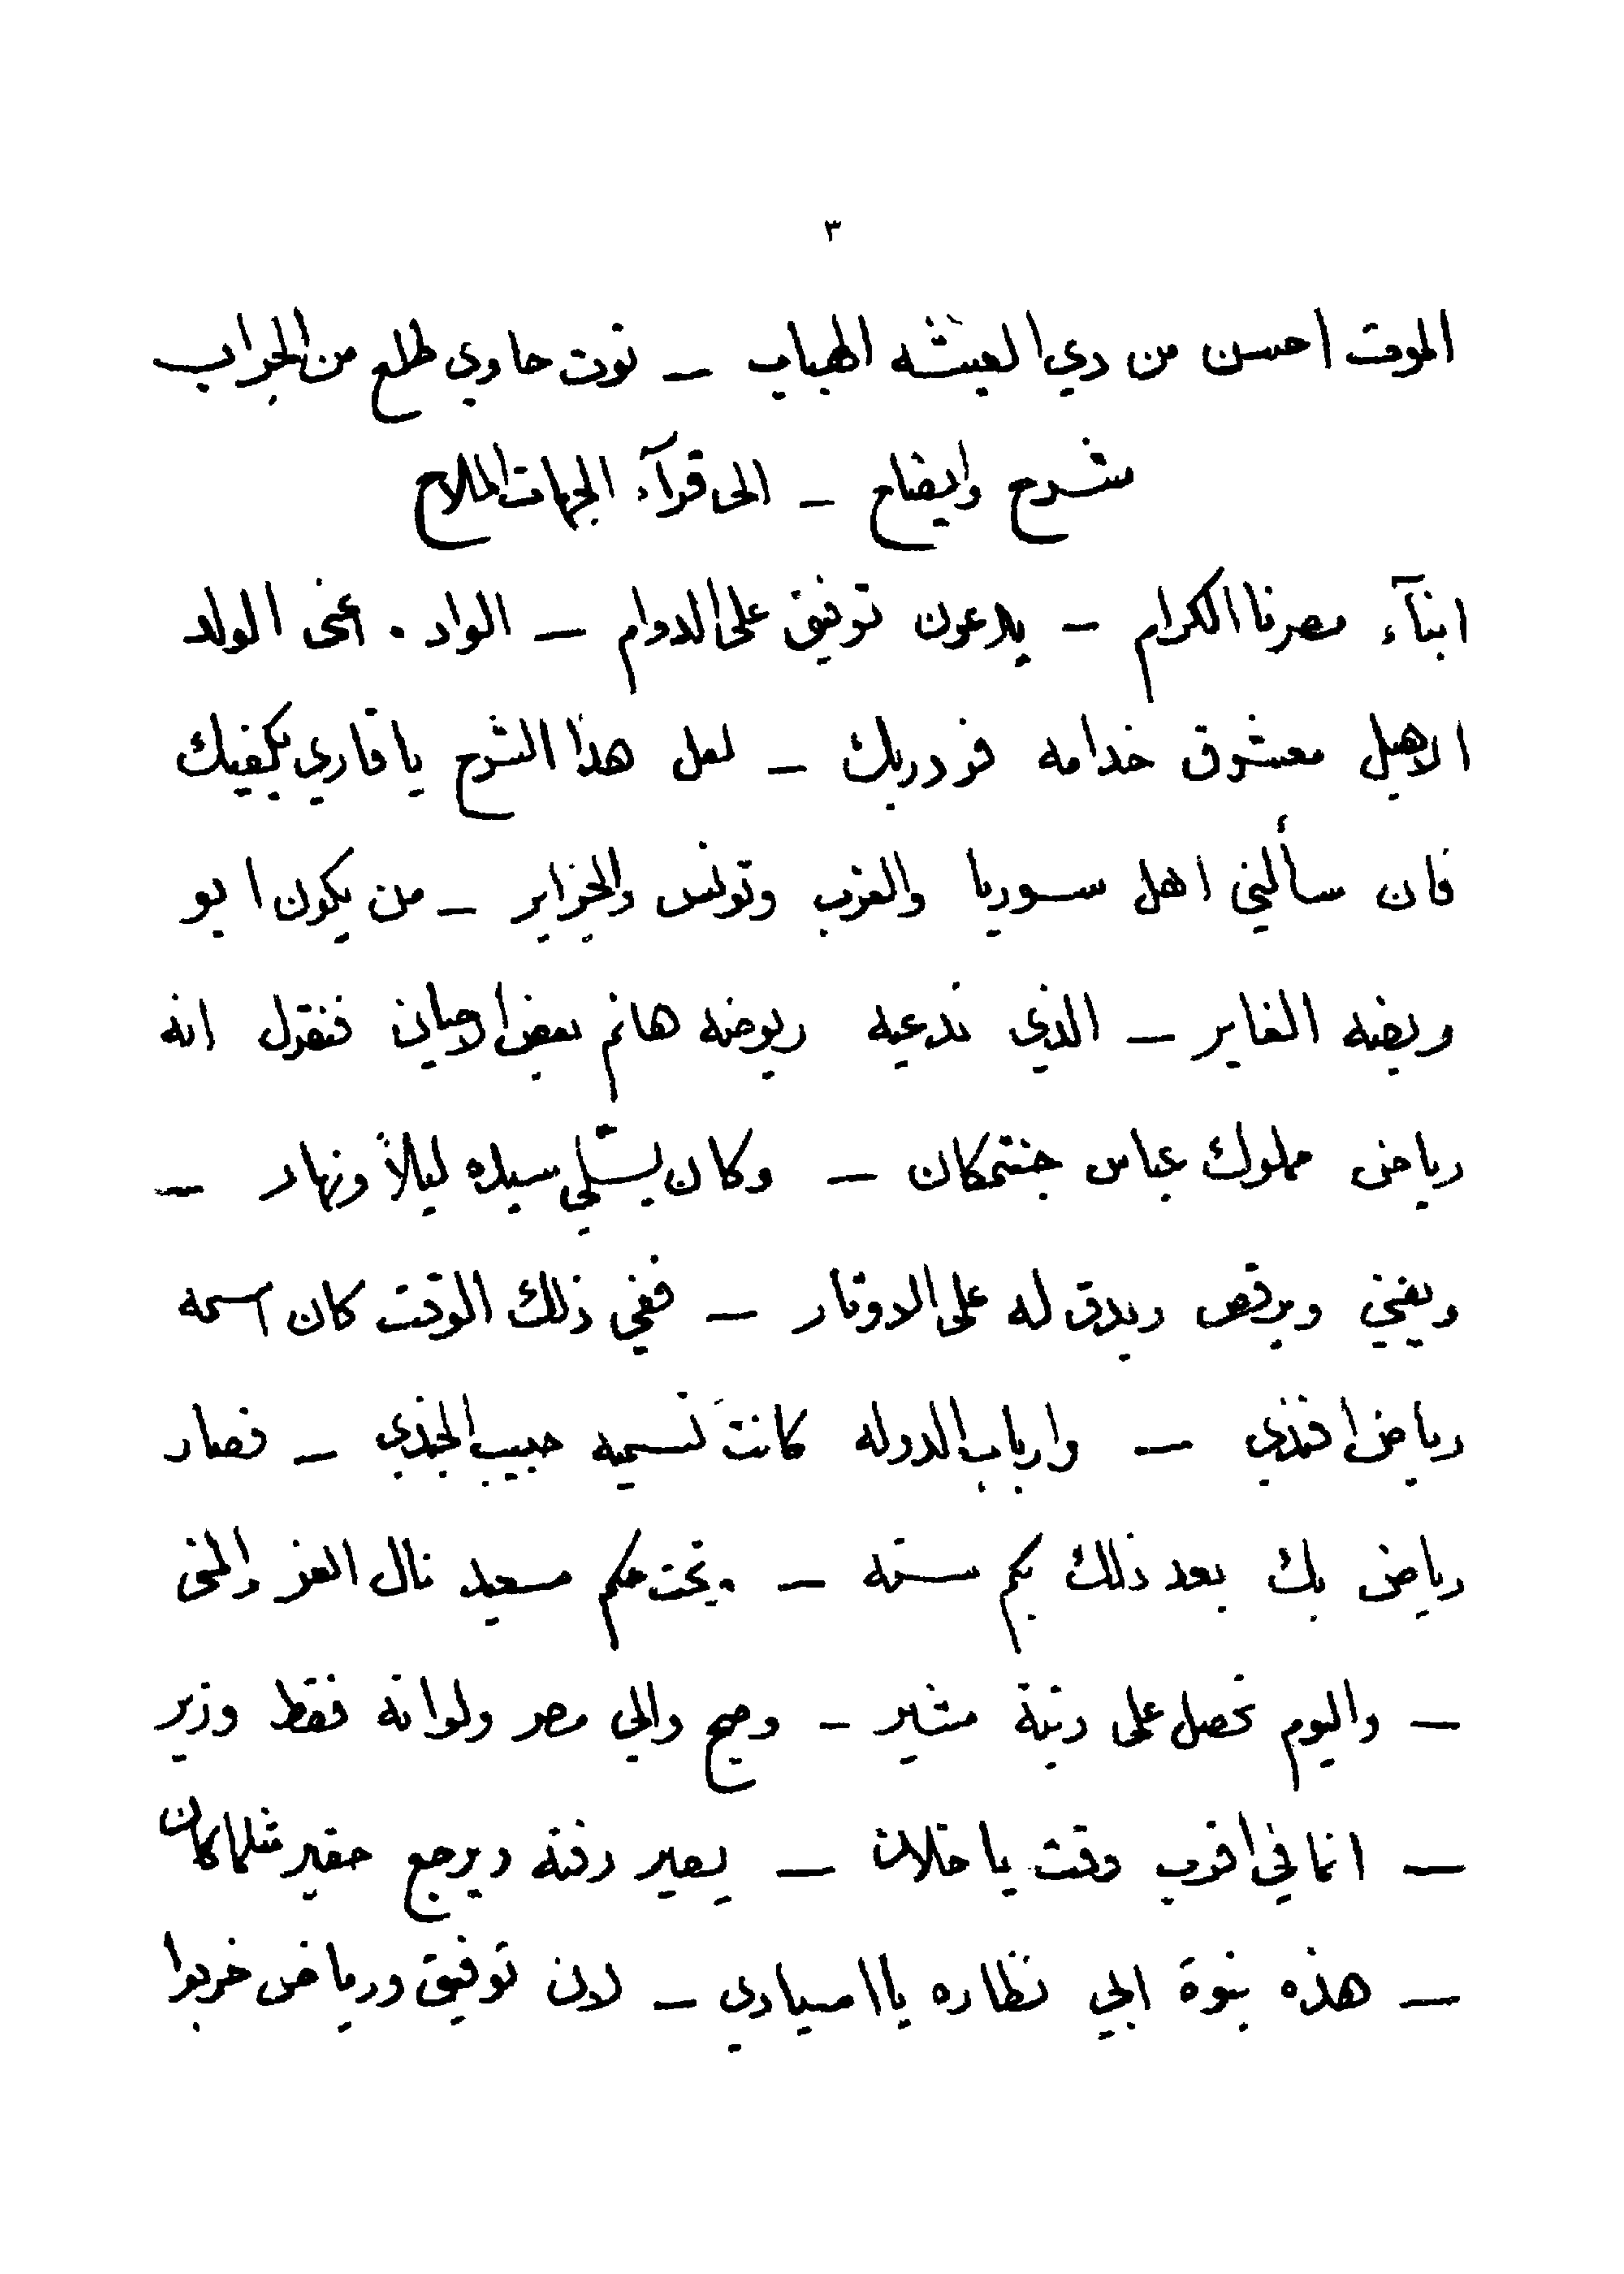 ٣
الموت احسن من دي العيشه الهباب – توت حاوي طلع من الجراب
شرح وايضاح – الى قرآء الجهات الملاح
ابنآء مصرنا الكرام – يدعون توفيق على الدوام – الواد . عنى الولد
الاهبل معشوق خدامه فردريك – لعل هذا الشرح يا قاري يكفيك
فان سألني اهل سوريا والغرب وتونس والجزاير – من يكون ابو
ريضه الغاير – الذي ندعيه ريوضه هانم بعض الاحيان فنقول انه
رياض مملوك عباس جنتمكان – وكان يسّلي سيده ليلاً ونهار –
ويغني ويرقص ويدق له على الاوتار – ففي ذلك الوقت كان اسمه
رياض افندي – وارباب الدوله كانت تسميه حبيب الجندي – فصار
رياض بك بعد ذلك بكم سنه – . وتحت حكم سعيد نال العز والمنى
– واليوم تحصل على رتبة مشير – وصبح والي مصر ولو انه فقط وزير
– انما في اقرب وقت يا خلان – يصير رفته ويرجع حقير مثلما كان
– هذه بنوة ابي نظاره يا اسيادي – لان توفيق ورياض خربوا